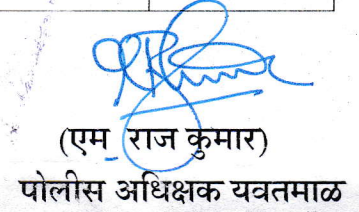 (एम राज कुमार)
पोलीस अधिक्षक यवतमाळ